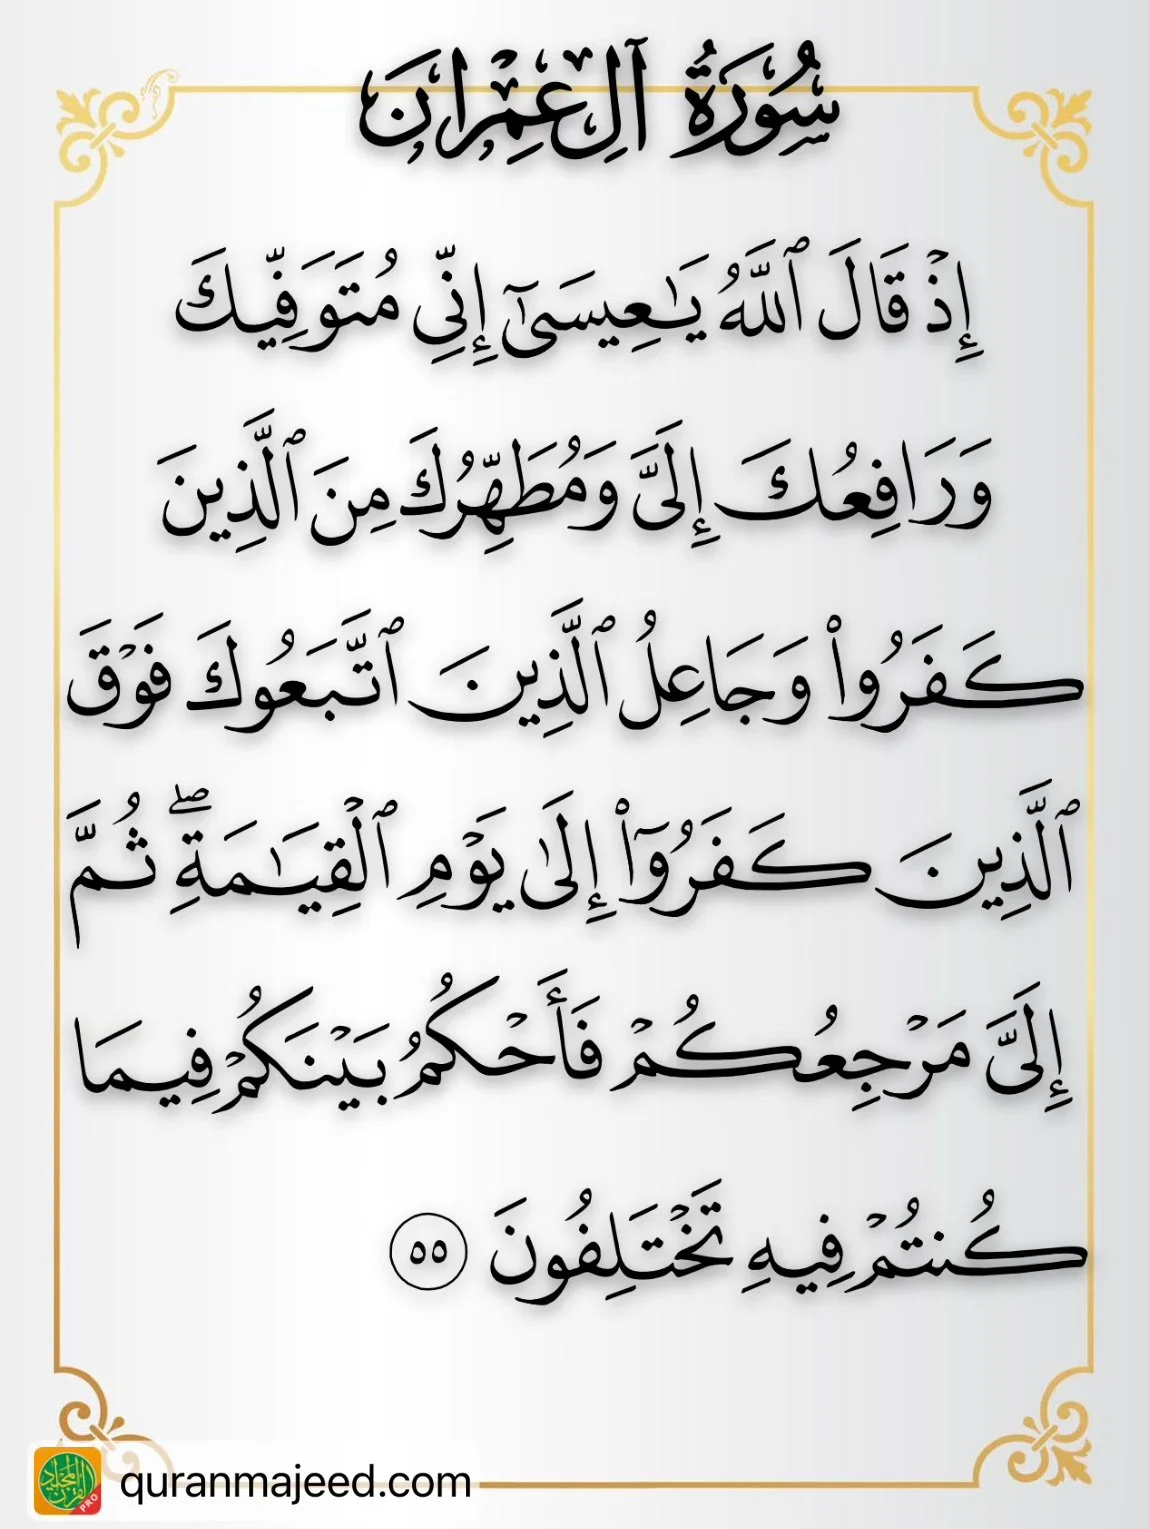 سُورَةُ آلِ عِمۡرَان
إِذۡ قَالَ ٱللَّهُ يَـٰعِيسَىٰٓ إِنِّي مُتَوَفِّيكَ
وَرَافِعُكَ إِلَيَّ وَمُطَهِّرُكَ مِنَ ٱلَّذِينَ
كَفَرُواْ وَجَاعِلُ ٱلَّذِينَ ٱتَّبَعُوكَ فَوۡقَ
ٱلَّذِينَ كَفَرُوٓاْ إِلَىٰ يَوۡمِ ٱلۡقِيَـٰمَةِۖ ثُمَّ
إِلَيَّ مَرۡجِعُكُمۡ فَأَحۡكُمُ بَيۡنَكُمۡ فِيمَا
كُنتُمۡ فِيهِ تَخۡتَلِفُونَ ٥٥
quranmajeed.com